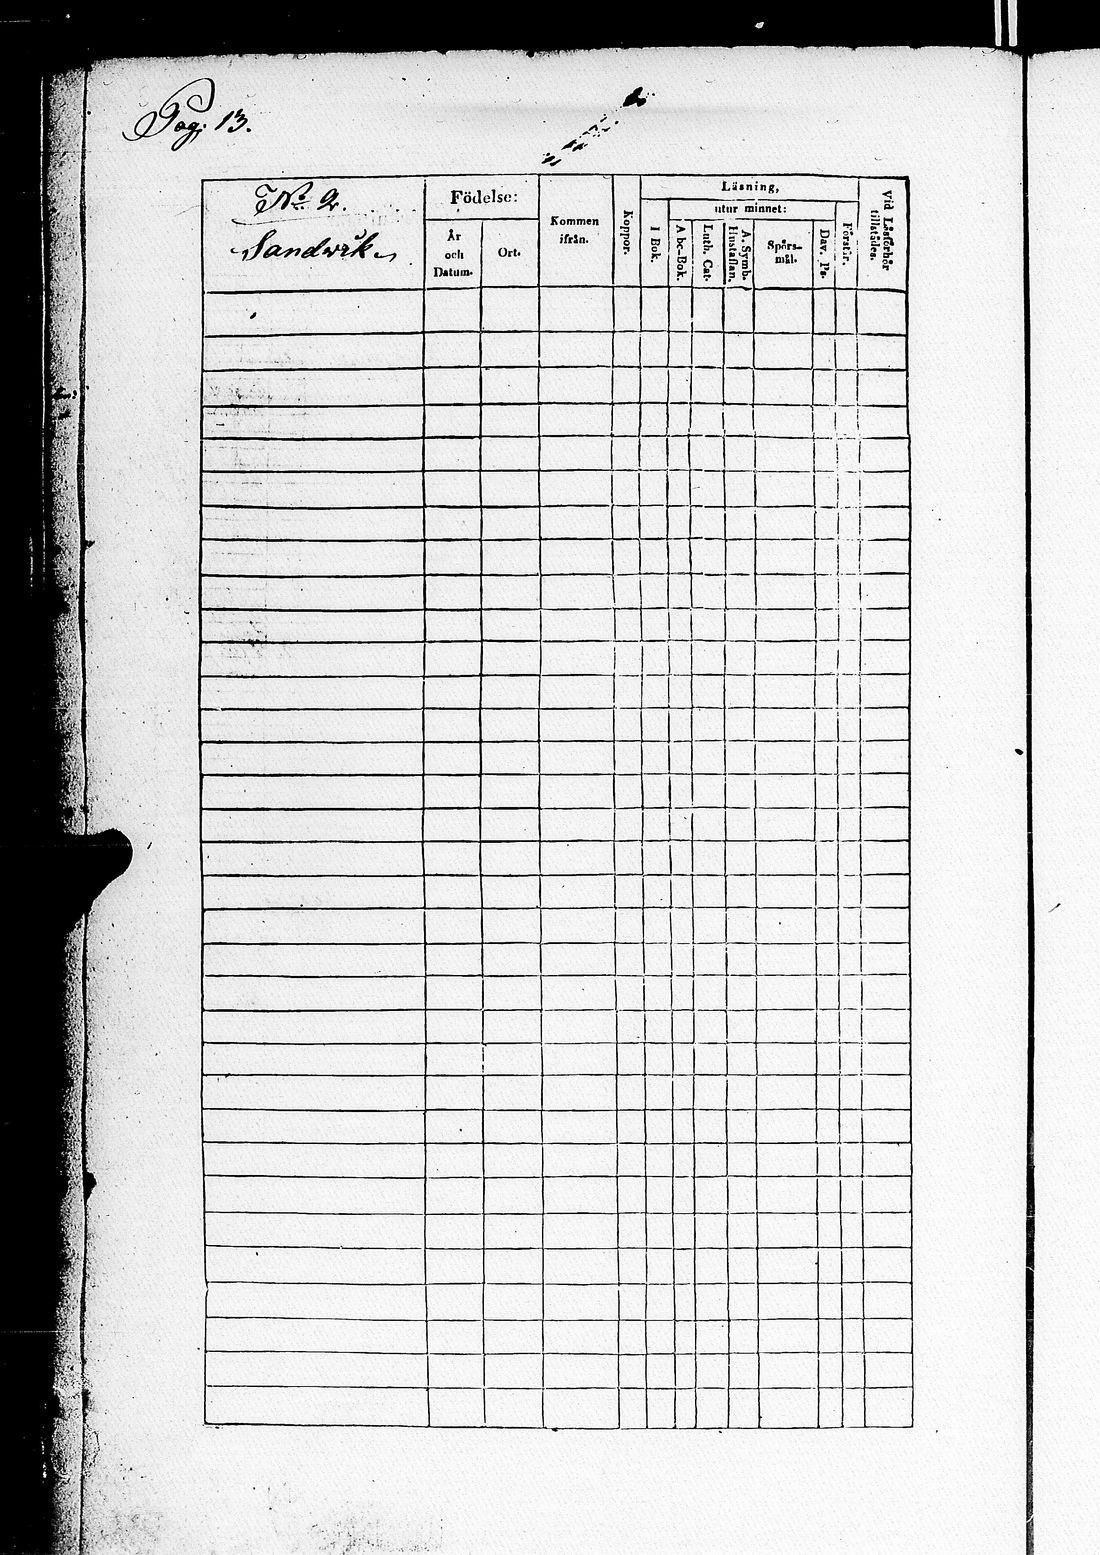 Pag: 13.
No 2.
Sandwik
Födelse:
År
och
Datum.
Ort.
Kommen
ifrån.
Koppor.
Läsning,
I Bok.
utur minnet:
Abc-Bok.
Luth. Cat.
A. Symb.
Hustaflan.
Spörs-
mål.
Dav. Ps.
Förstår.
Vid Läsförhör
tillstädes.